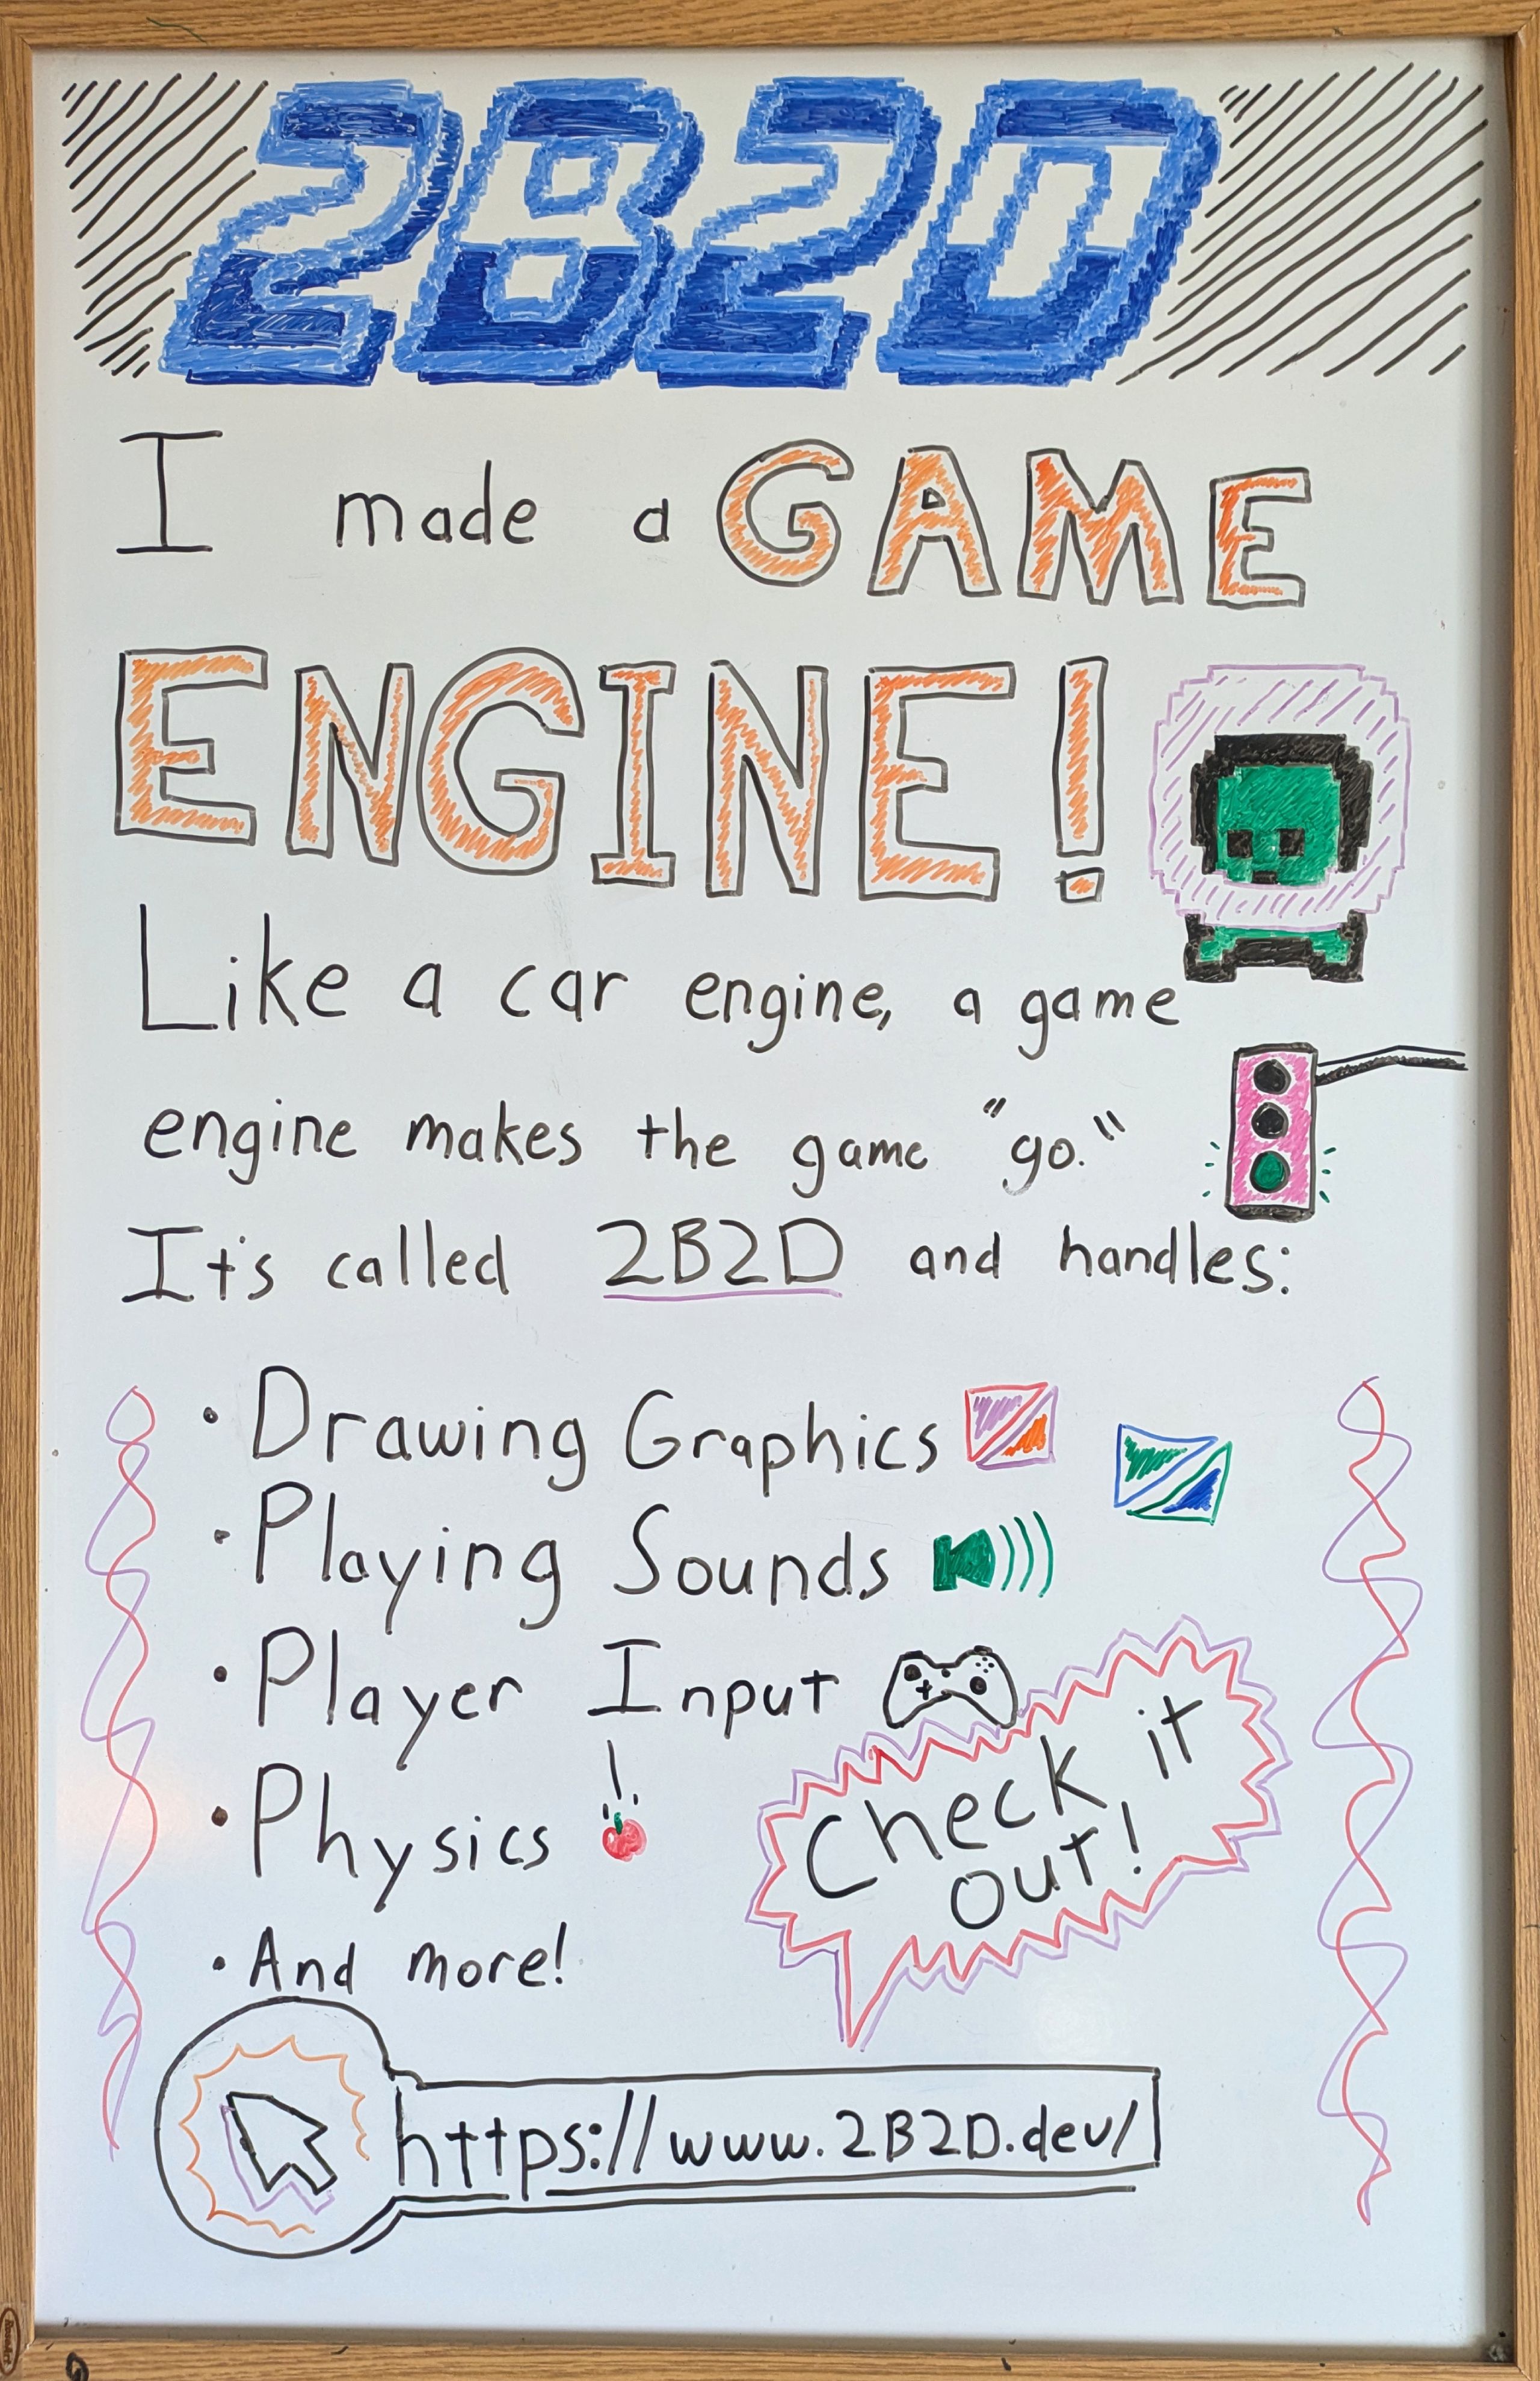 2B2D
I made a GAME
ENGINE!
Like a car engine, a game
engine makes the game "go."
It's called 2B2D and handles:
• Drawing Graphics
• Playing Sounds
• Player Input
• Physics
• And more!
Check it
out!
https://www.2B2D.dev/